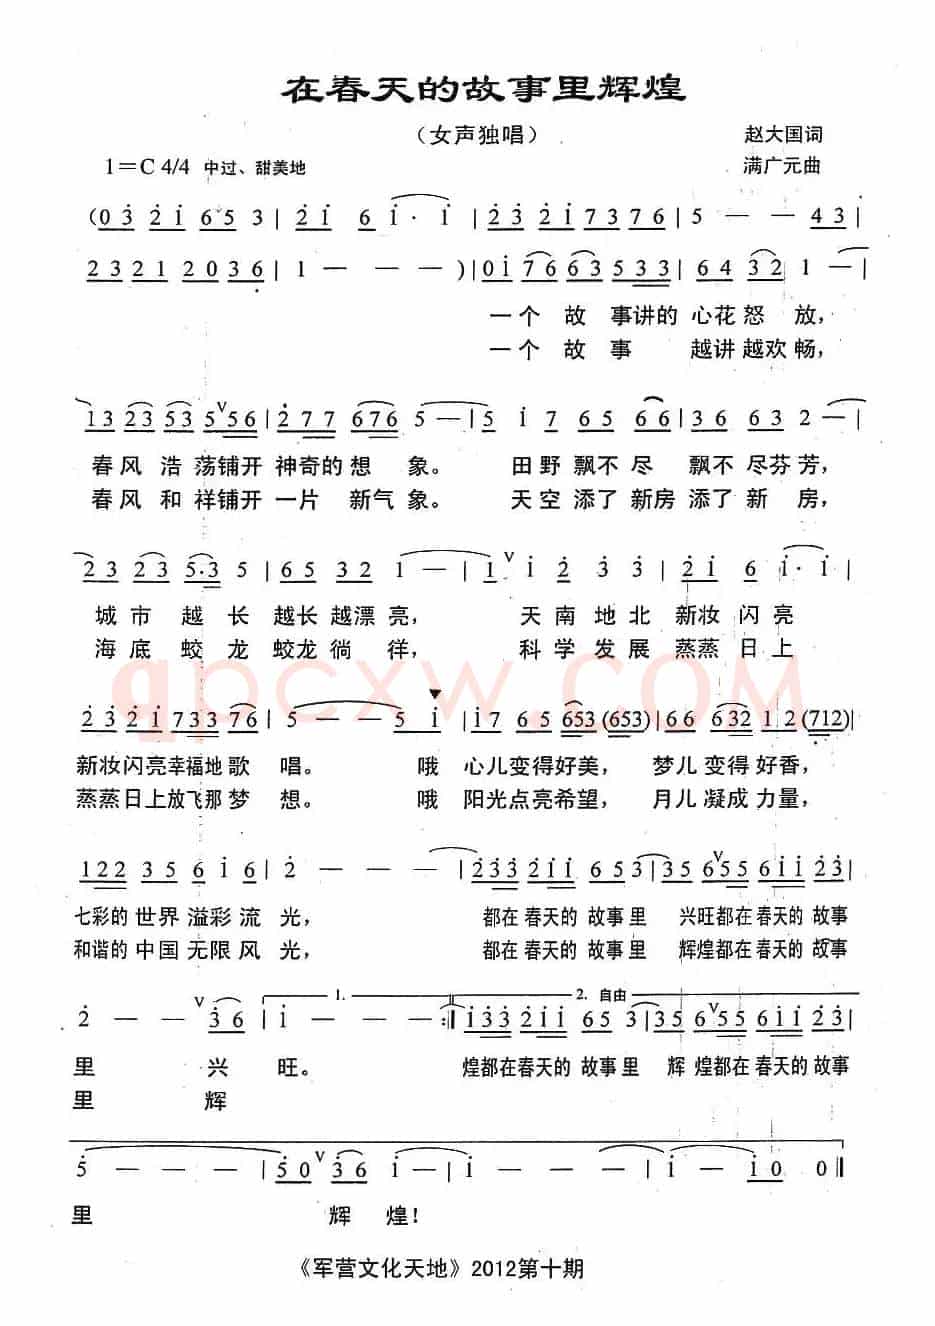 在春天的故事里辉煌
（女声独唱）
赵大国词
1＝C 4/4 中过、甜美地
满广元曲
(0 3 2 1 6 5 3 | 2 1 6 1 · 1 | 2 3 2 1 7 3 7 6 | 5 — — 4 3 |
2 3 2 1 2 0 3 6 | 1 — — — ) | 0 1 7 6 6 3 5 3 3 | 6 4 3 2 1 — |
一个 故 事讲的 心花 怒 放，
一个 故 事 越讲 越欢 畅，
1 3 2 3 5 3 5 ∨ 5 6 | 2 7 7 6 7 6 5 — | 5 1 7 6 5 6 6 | 3 6 6 3 2 — |
春风 浩 荡铺开 神奇的 想 象。 田野 飘不 尽 飘不 尽芬 芳，
春风 和 祥铺开 一片 新气 象。 天空 添了 新房 添了 新 房，
2 3 2 3 5 · 3 5 | 6 5 3 2 1 — | 1 ∨ 1 2 3 3 | 2 1 6 1 · 1 |
城 市 越 长 越长 越漂 亮， 天 南 地 北 新妆 闪 亮
海 底 蛟 龙 蛟龙 徜 徉， 科 学 发 展 蒸蒸 日 上
2 3 2 1 7 3 3 7 6 | 5 — — 5 1 | 1 7 6 5 6 5 3 (6 5 3) | 6 6 6 3 2 1 2 (7 1 2) |
新妆闪亮幸福地 歌 唱。 哦 心儿变得好美， 梦儿 变得 好香，
蒸蒸日上放飞那 梦 想。 哦 阳光点亮希望， 月儿 凝成 力量，
1 2 2 3 5 6 1 6 | 2 — — — | 2 3 3 2 1 1 6 5 3 | 3 5 6 ∨ 5 5 6 1 1 2 3 |
七彩的 世界 溢彩 流 光， 都在 春天的 故事 里 兴旺都在 春天的 故事
和谐的 中国 无限 风 光， 都在 春天的 故事 里 辉煌都在 春天的 故事
2 — — ∨ 3 6 | 1. 1 — — — :‖ 2. 自由 1 3 3 2 1 1 6 5 3 | 3 5 6 ∨ 5 5 6 1 1 2 3 |
里 兴 旺。 煌都在 春天的 故事 里 辉 煌都在 春天的 故事
里 辉
5 — — — | 5 0 ∨ 3 6 1 — | 1 — — — | 1 — 1 0 0 ‖
里 辉 煌！
《军营文化天地》2012第十期
qpcxw.COM